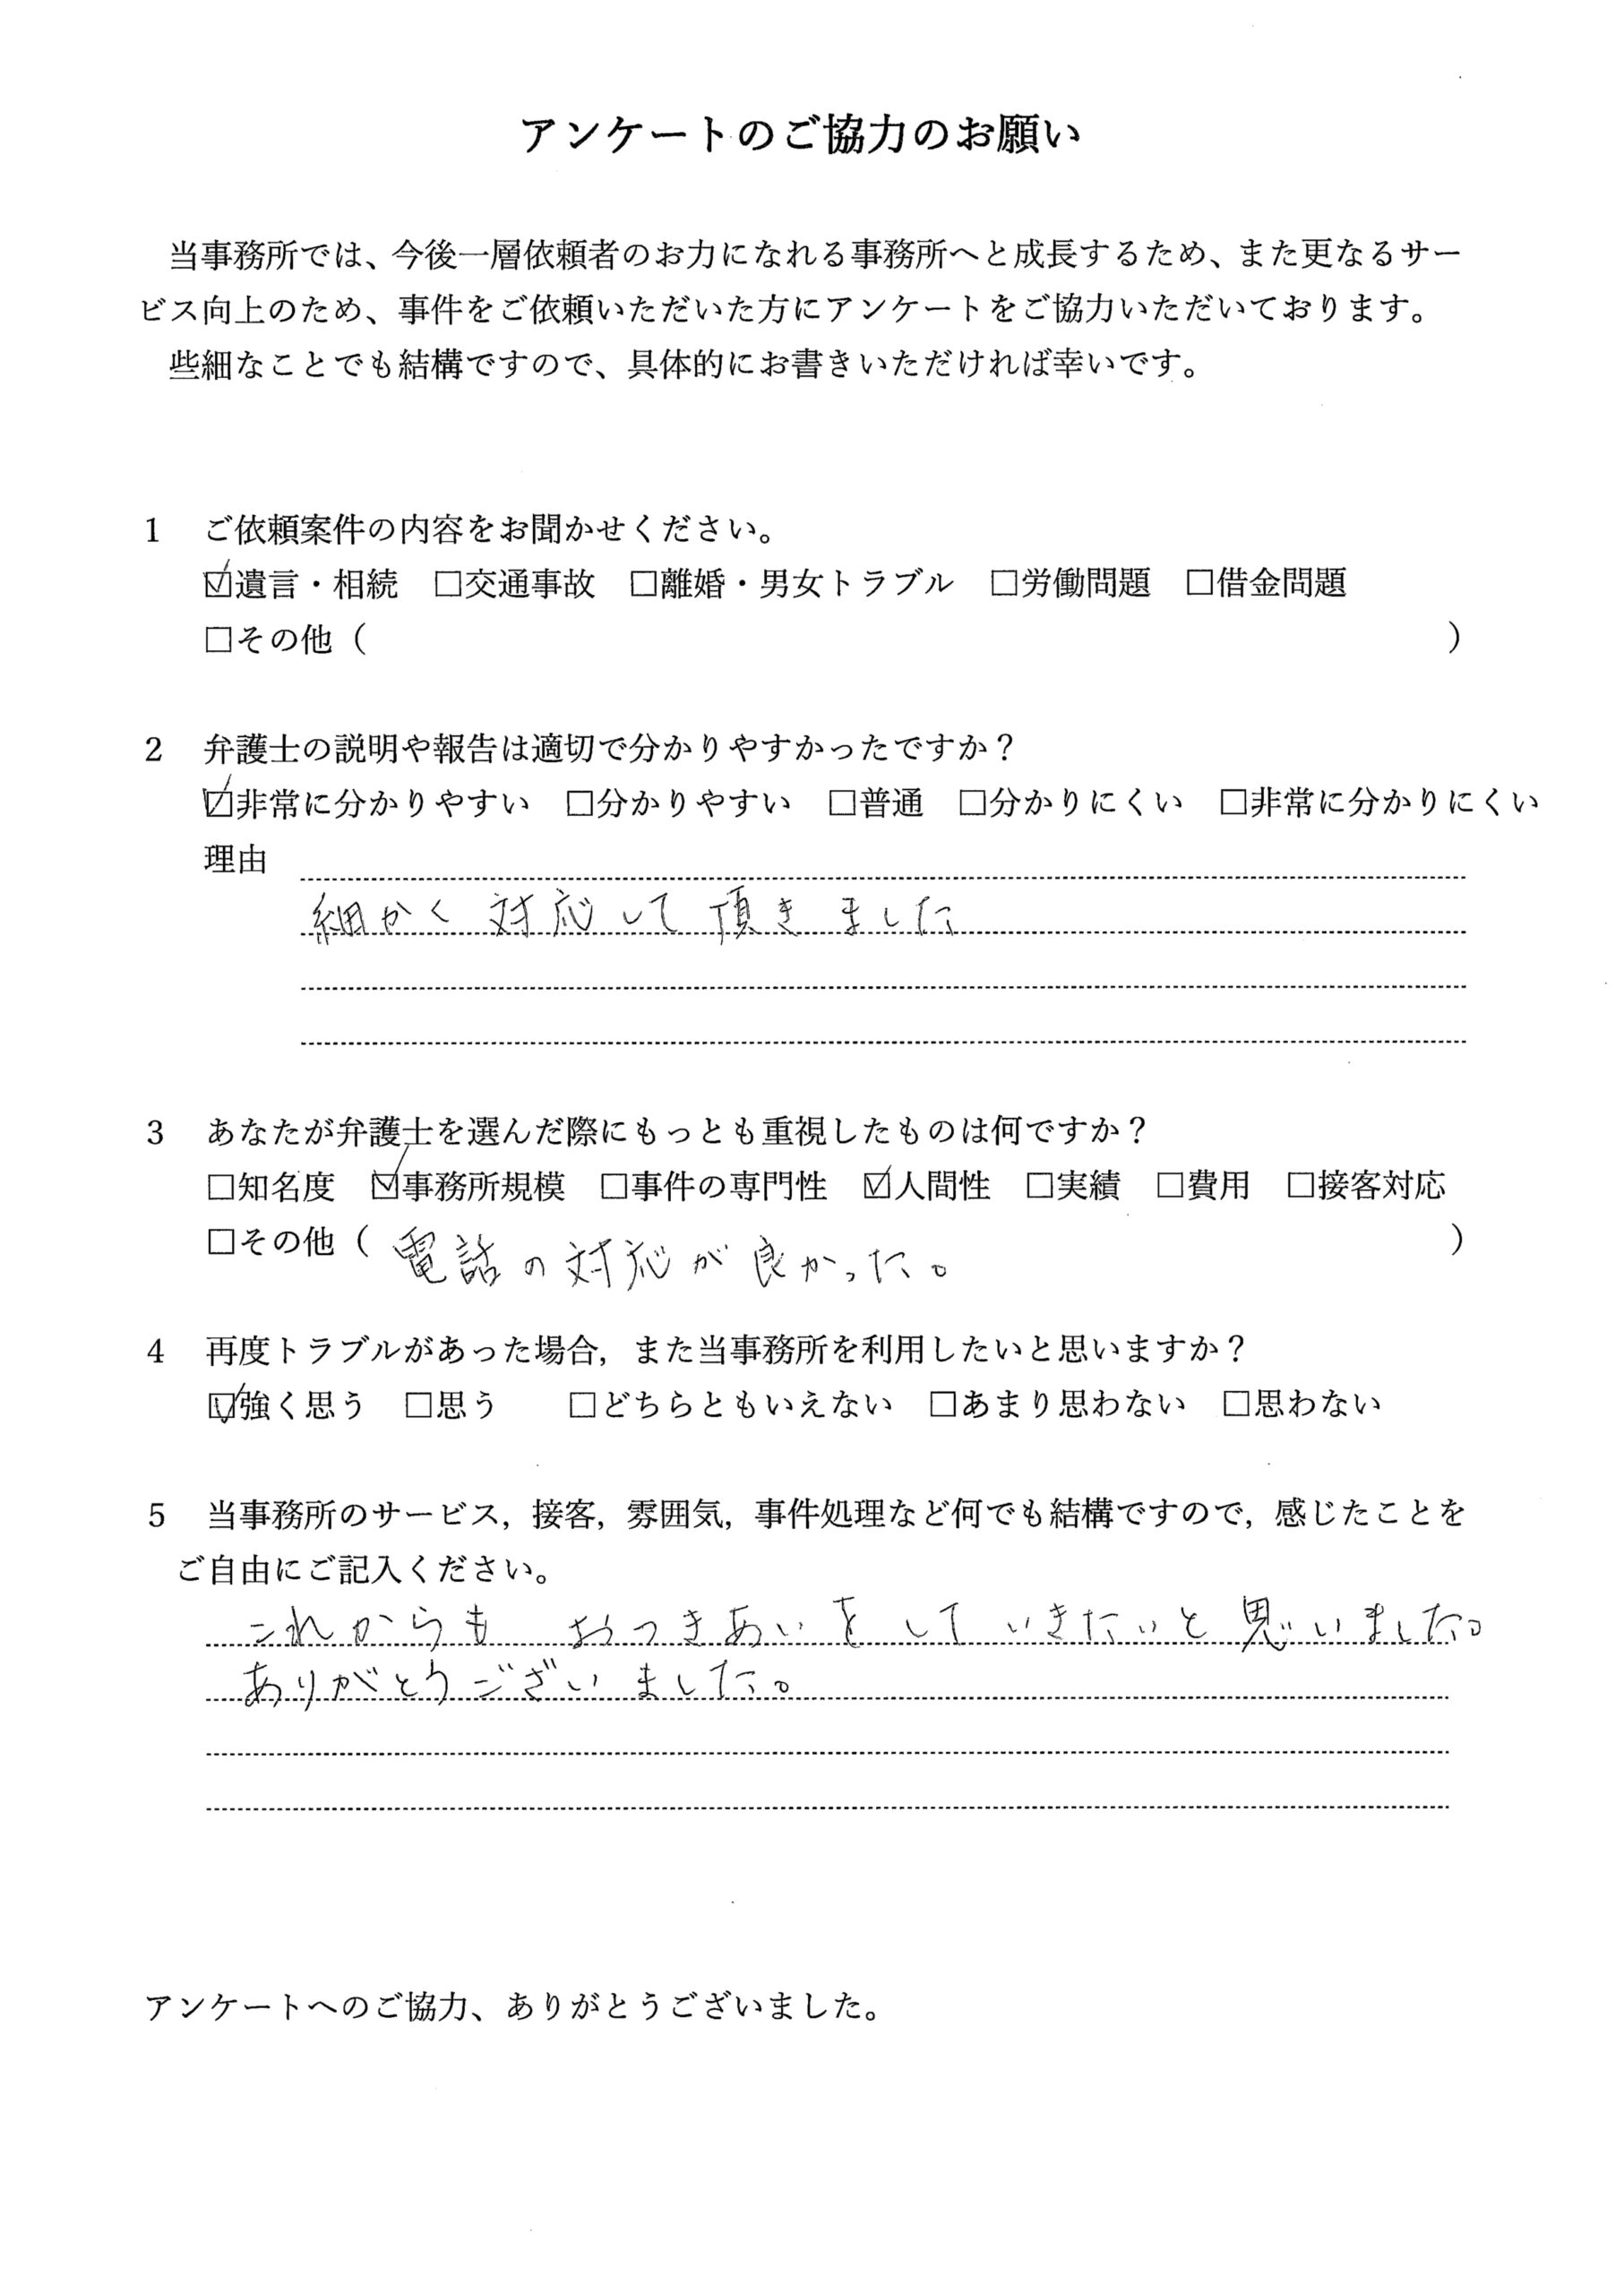 アンケートのご協力のお願い
当事務所では、今後一層依頼者のお力になれる事務所へと成長するため、また更なるサー
ビス向上のため、事件をご依頼いただいた方にアンケートをご協力いただいております。
些細なことでも結構ですので、具体的にお書きいただければ幸いです。
1 ご依頼案件の内容をお聞かせください。
☑遺言・相続 □交通事故 □離婚・男女トラブル □労働問題 □借金問題
□その他（ ）
2 弁護士の説明や報告は適切で分かりやすかったですか？
☑非常に分かりやすい □分かりやすい □普通 □分かりにくい □非常に分かりにくい
理由
細かく対応して頂きました
3 あなたが弁護士を選んだ際にもっとも重視したものは何ですか？
□知名度 ☑事務所規模 □事件の専門性 ☑人間性 □実績 □費用 □接客対応
□その他（電話の対応が良かった。）
4 再度トラブルがあった場合，また当事務所を利用したいと思いますか？
☑強く思う □思う □どちらともいえない □あまり思わない □思わない
5 当事務所のサービス，接客，雰囲気，事件処理など何でも結構ですので，感じたことを
ご自由にご記入ください。
これからも おつきあいをしていきたいと思いました。
ありがとうございました。
アンケートへのご協力、ありがとうございました。